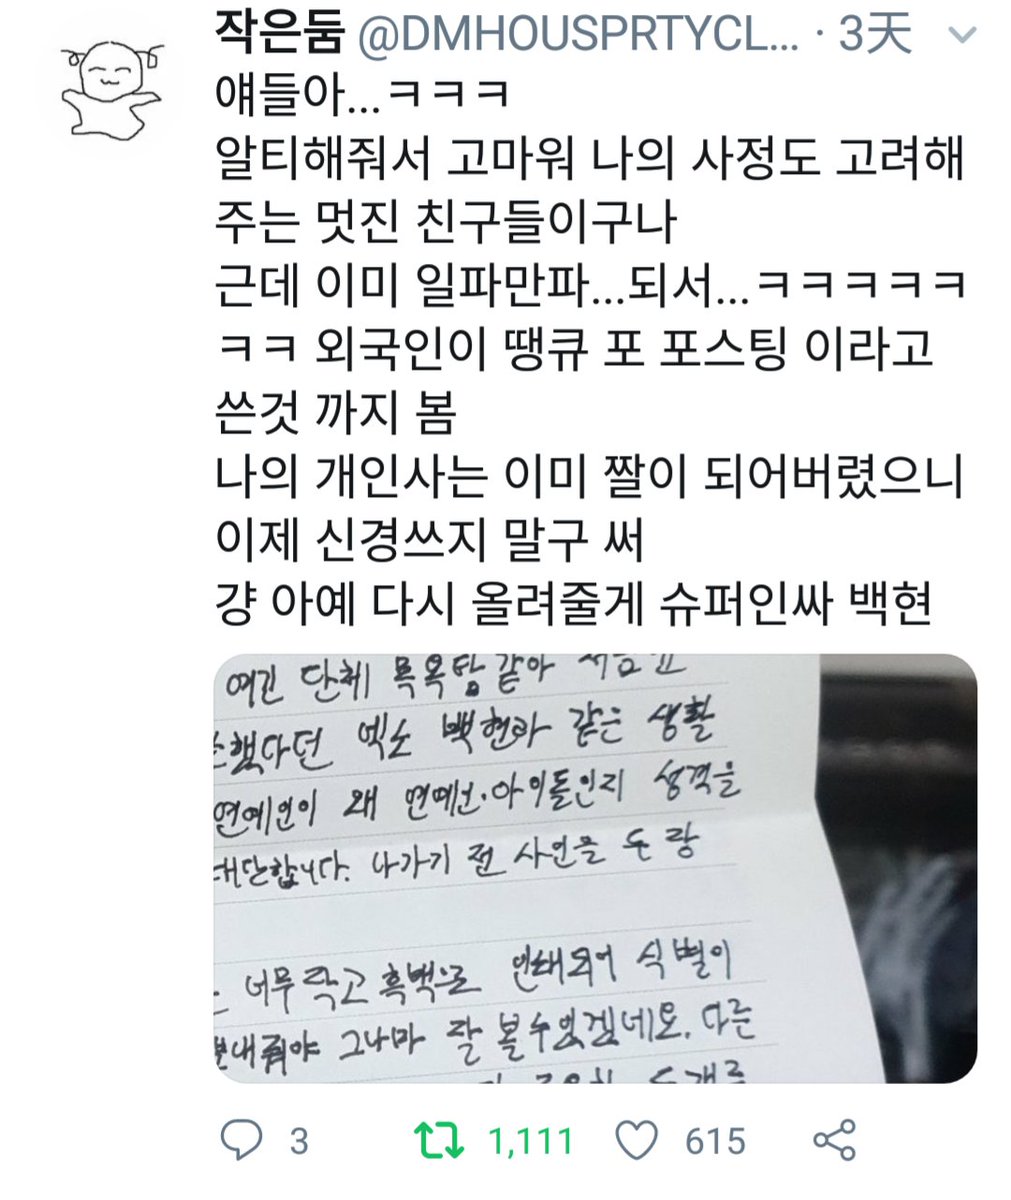 작은둠 @DMHOUSPRTYCL... · 3天
얘들아...ㅋㅋㅋ
알티해줘서 고마워 나의 사정도 고려해
주는 멋진 친구들이구나
근데 이미 일파만파...되서...ㅋㅋㅋㅋㅋ
ㅋㅋ 외국인이 땡큐 포 포스팅 이라고
쓴것 까지 봄
나의 개인사는 이미 짤이 되어버렸으니
이제 신경쓰지 말구 써
걍 아예 다시 올려줄게 슈퍼인싸 백현
여긴 단체 목욕탕 같아
했다던 엑소 백현라 같은 생활
연예인이 왜 연예인.아이돌인지 성격을
대단합니다. 나가기 전 사인을
너무 작고 흑백으로 인쇄되어 식별이
보내줘야 그나마 잘 볼수있겠네요. 다른
3 1,111 615